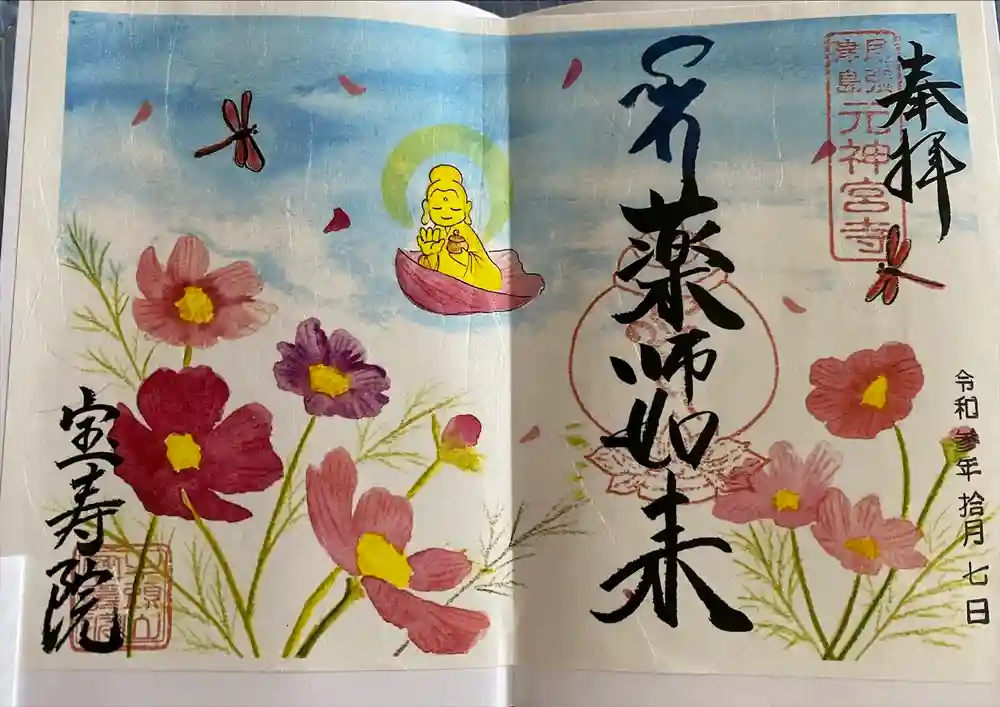 奉拝
尾張
津島
元神宮寺
薬師如来
令和参年拾月七日
宝寿院